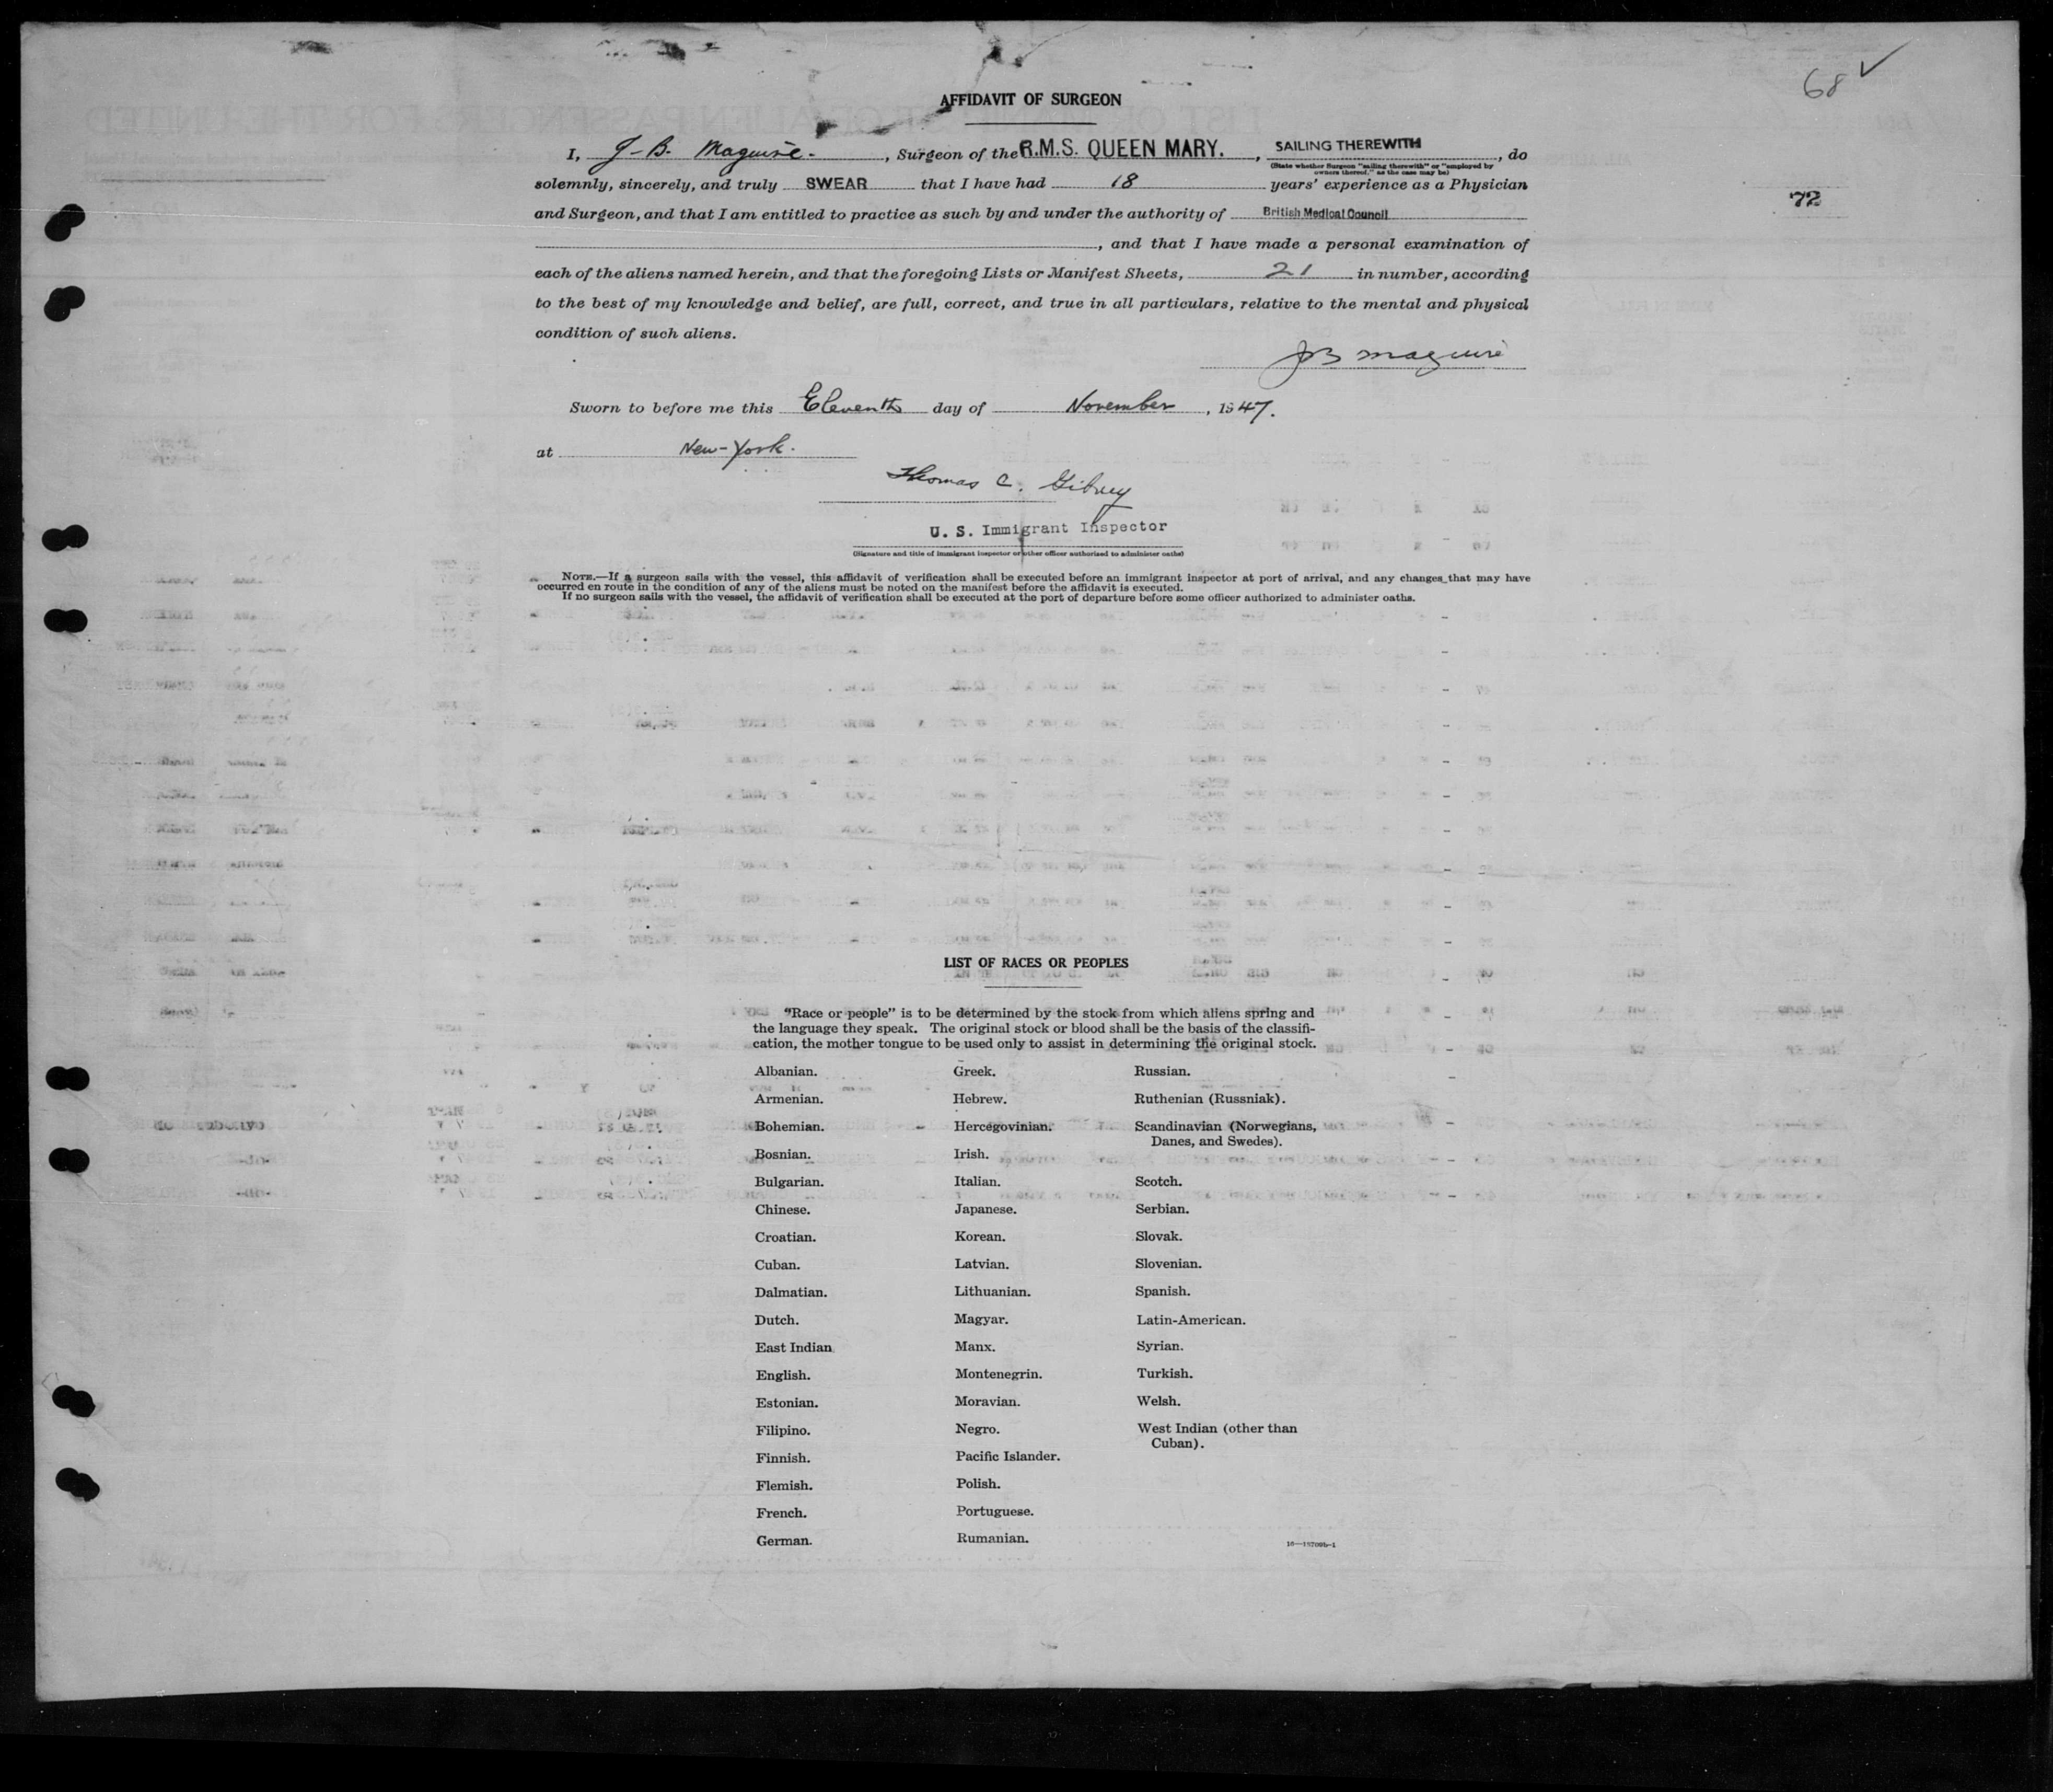 68 ✓
AFFIDAVIT OF SURGEON
I, J. B. Maguire., Surgeon of the R.M.S. QUEEN MARY., SAILING THEREWITH, do
(State whether Surgeon "sailing therewith" or "employed by
owners thereof," as the case may be)
solemnly, sincerely, and truly SWEAR that I have had 18 years' experience as a Physician
72
and Surgeon, and that I am entitled to practice as such by and under the authority of British Medical Council
, and that I have made a personal examination of
each of the aliens named herein, and that the foregoing Lists or Manifest Sheets, 21 in number, according
to the best of my knowledge and belief, are full, correct, and true in all particulars, relative to the mental and physical
condition of such aliens.
JB Maguire
Sworn to before me this Eleventh day of November, 1947.
at New-York.
Thomas C. Gibney
U. S. Immigrant Inspector
(Signature and title of immigrant inspector or other officer authorized to administer oaths)
NOTE.—If a surgeon sails with the vessel, this affidavit of verification shall be executed before an immigrant inspector at port of arrival, and any changes that may have
occurred en route in the condition of any of the aliens must be noted on the manifest before the affidavit is executed.
If no surgeon sails with the vessel, the affidavit of verification shall be executed at the port of departure before some officer authorized to administer oaths.
LIST OF RACES OR PEOPLES
"Race or people" is to be determined by the stock from which aliens spring and
the language they speak. The original stock or blood shall be the basis of the classifi-
cation, the mother tongue to be used only to assist in determining the original stock.
Albanian.
Armenian.
Bohemian.
Bosnian.
Bulgarian.
Chinese.
Croatian.
Cuban.
Dalmatian.
Dutch.
East Indian
English.
Estonian.
Filipino.
Finnish.
Flemish.
French.
German.
Greek.
Hebrew.
Hercegovinian.
Irish.
Italian.
Japanese.
Korean.
Latvian.
Lithuanian.
Magyar.
Manx.
Montenegrin.
Moravian.
Negro.
Pacific Islander.
Polish.
Portuguese.
Rumanian.
Russian.
Ruthenian (Russniak).
Scandinavian (Norwegians,
Danes, and Swedes).
Scotch.
Serbian.
Slovak.
Slovenian.
Spanish.
Latin-American.
Syrian.
Turkish.
Welsh.
West Indian (other than
Cuban).